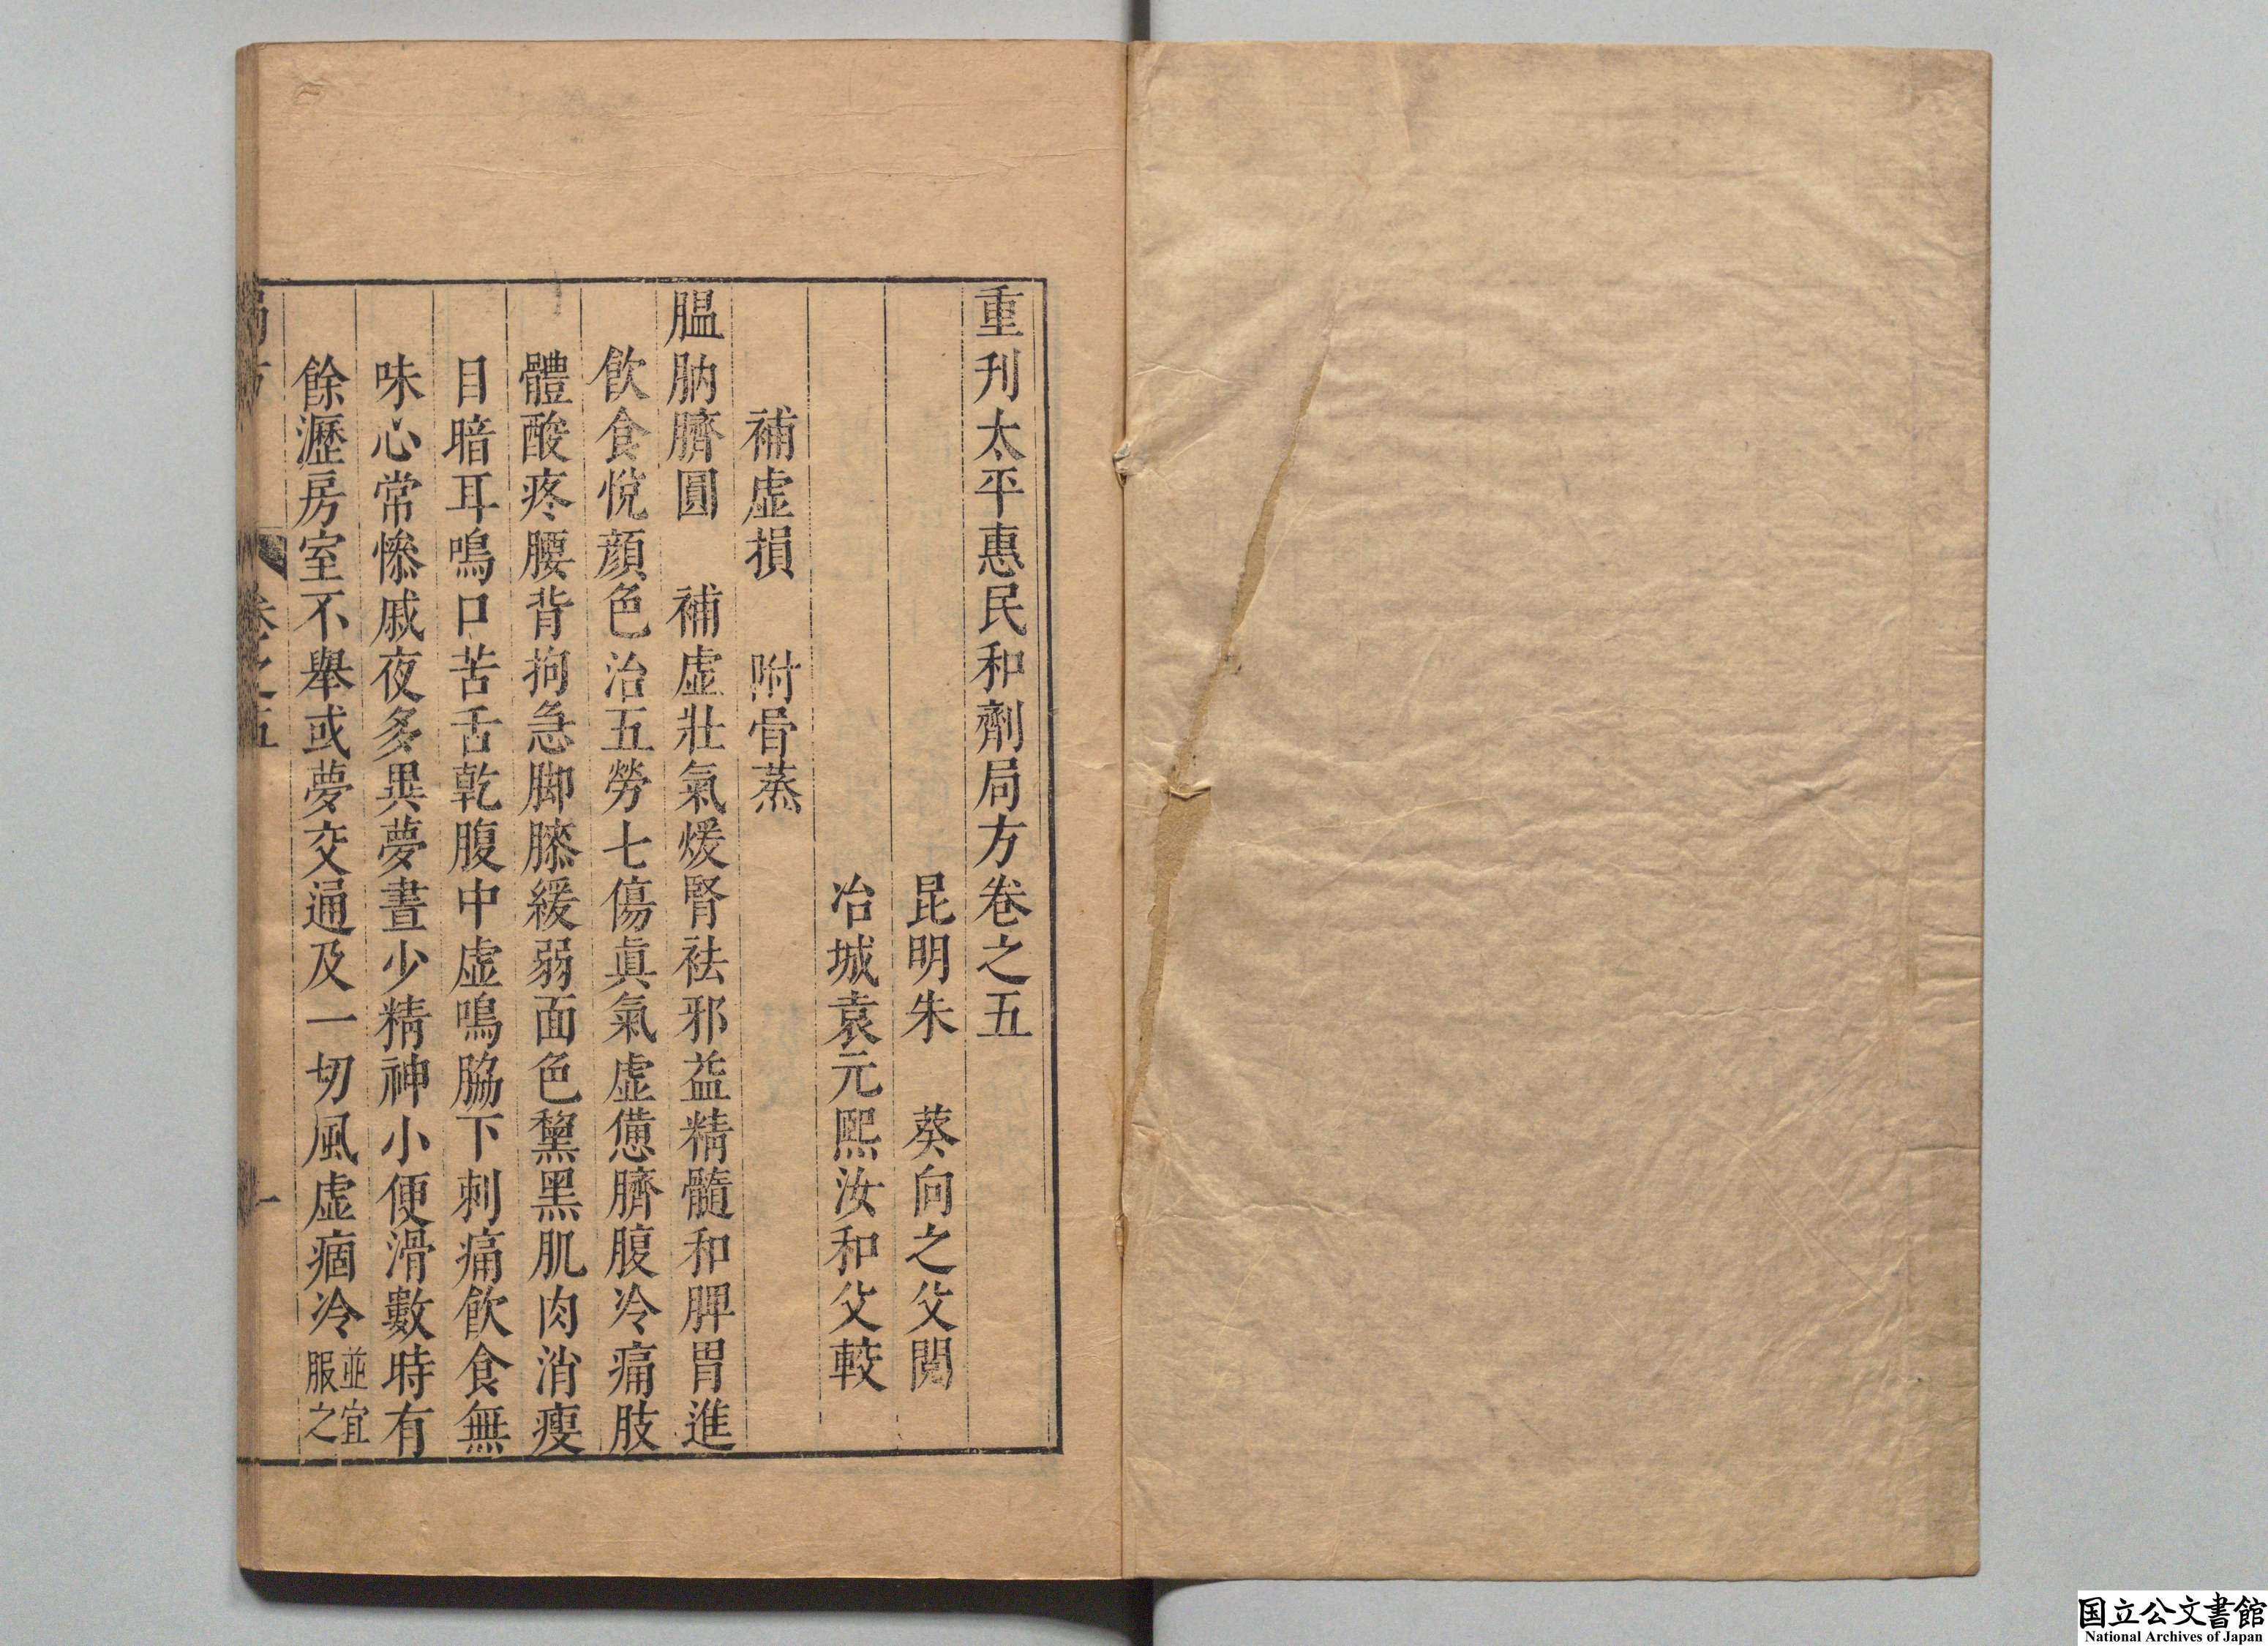 重刊太平惠民和劑局方卷之五
昆明朱　葵向之父閱
冶城袁元熙汝和父較
補虛損　附骨蒸
膃肭臍圓　補虛壯氣煖腎祛邪益精髓和脾胃進
飲食悅顔色治五勞七傷眞氣虛憊臍腹冷痛肢
體酸疼腰背拘急脚膝緩弱面色黧黑肌肉消瘦
目暗耳鳴口苦舌乾腹中虛鳴脇下刺痛飲食無
味心常慘戚夜多異夢晝少精神小便滑數時有
餘瀝房室不舉或夢交通及一切風虛痼冷並宜服之
局方　卷之五　一
国立公文書館
National Archives of Japan